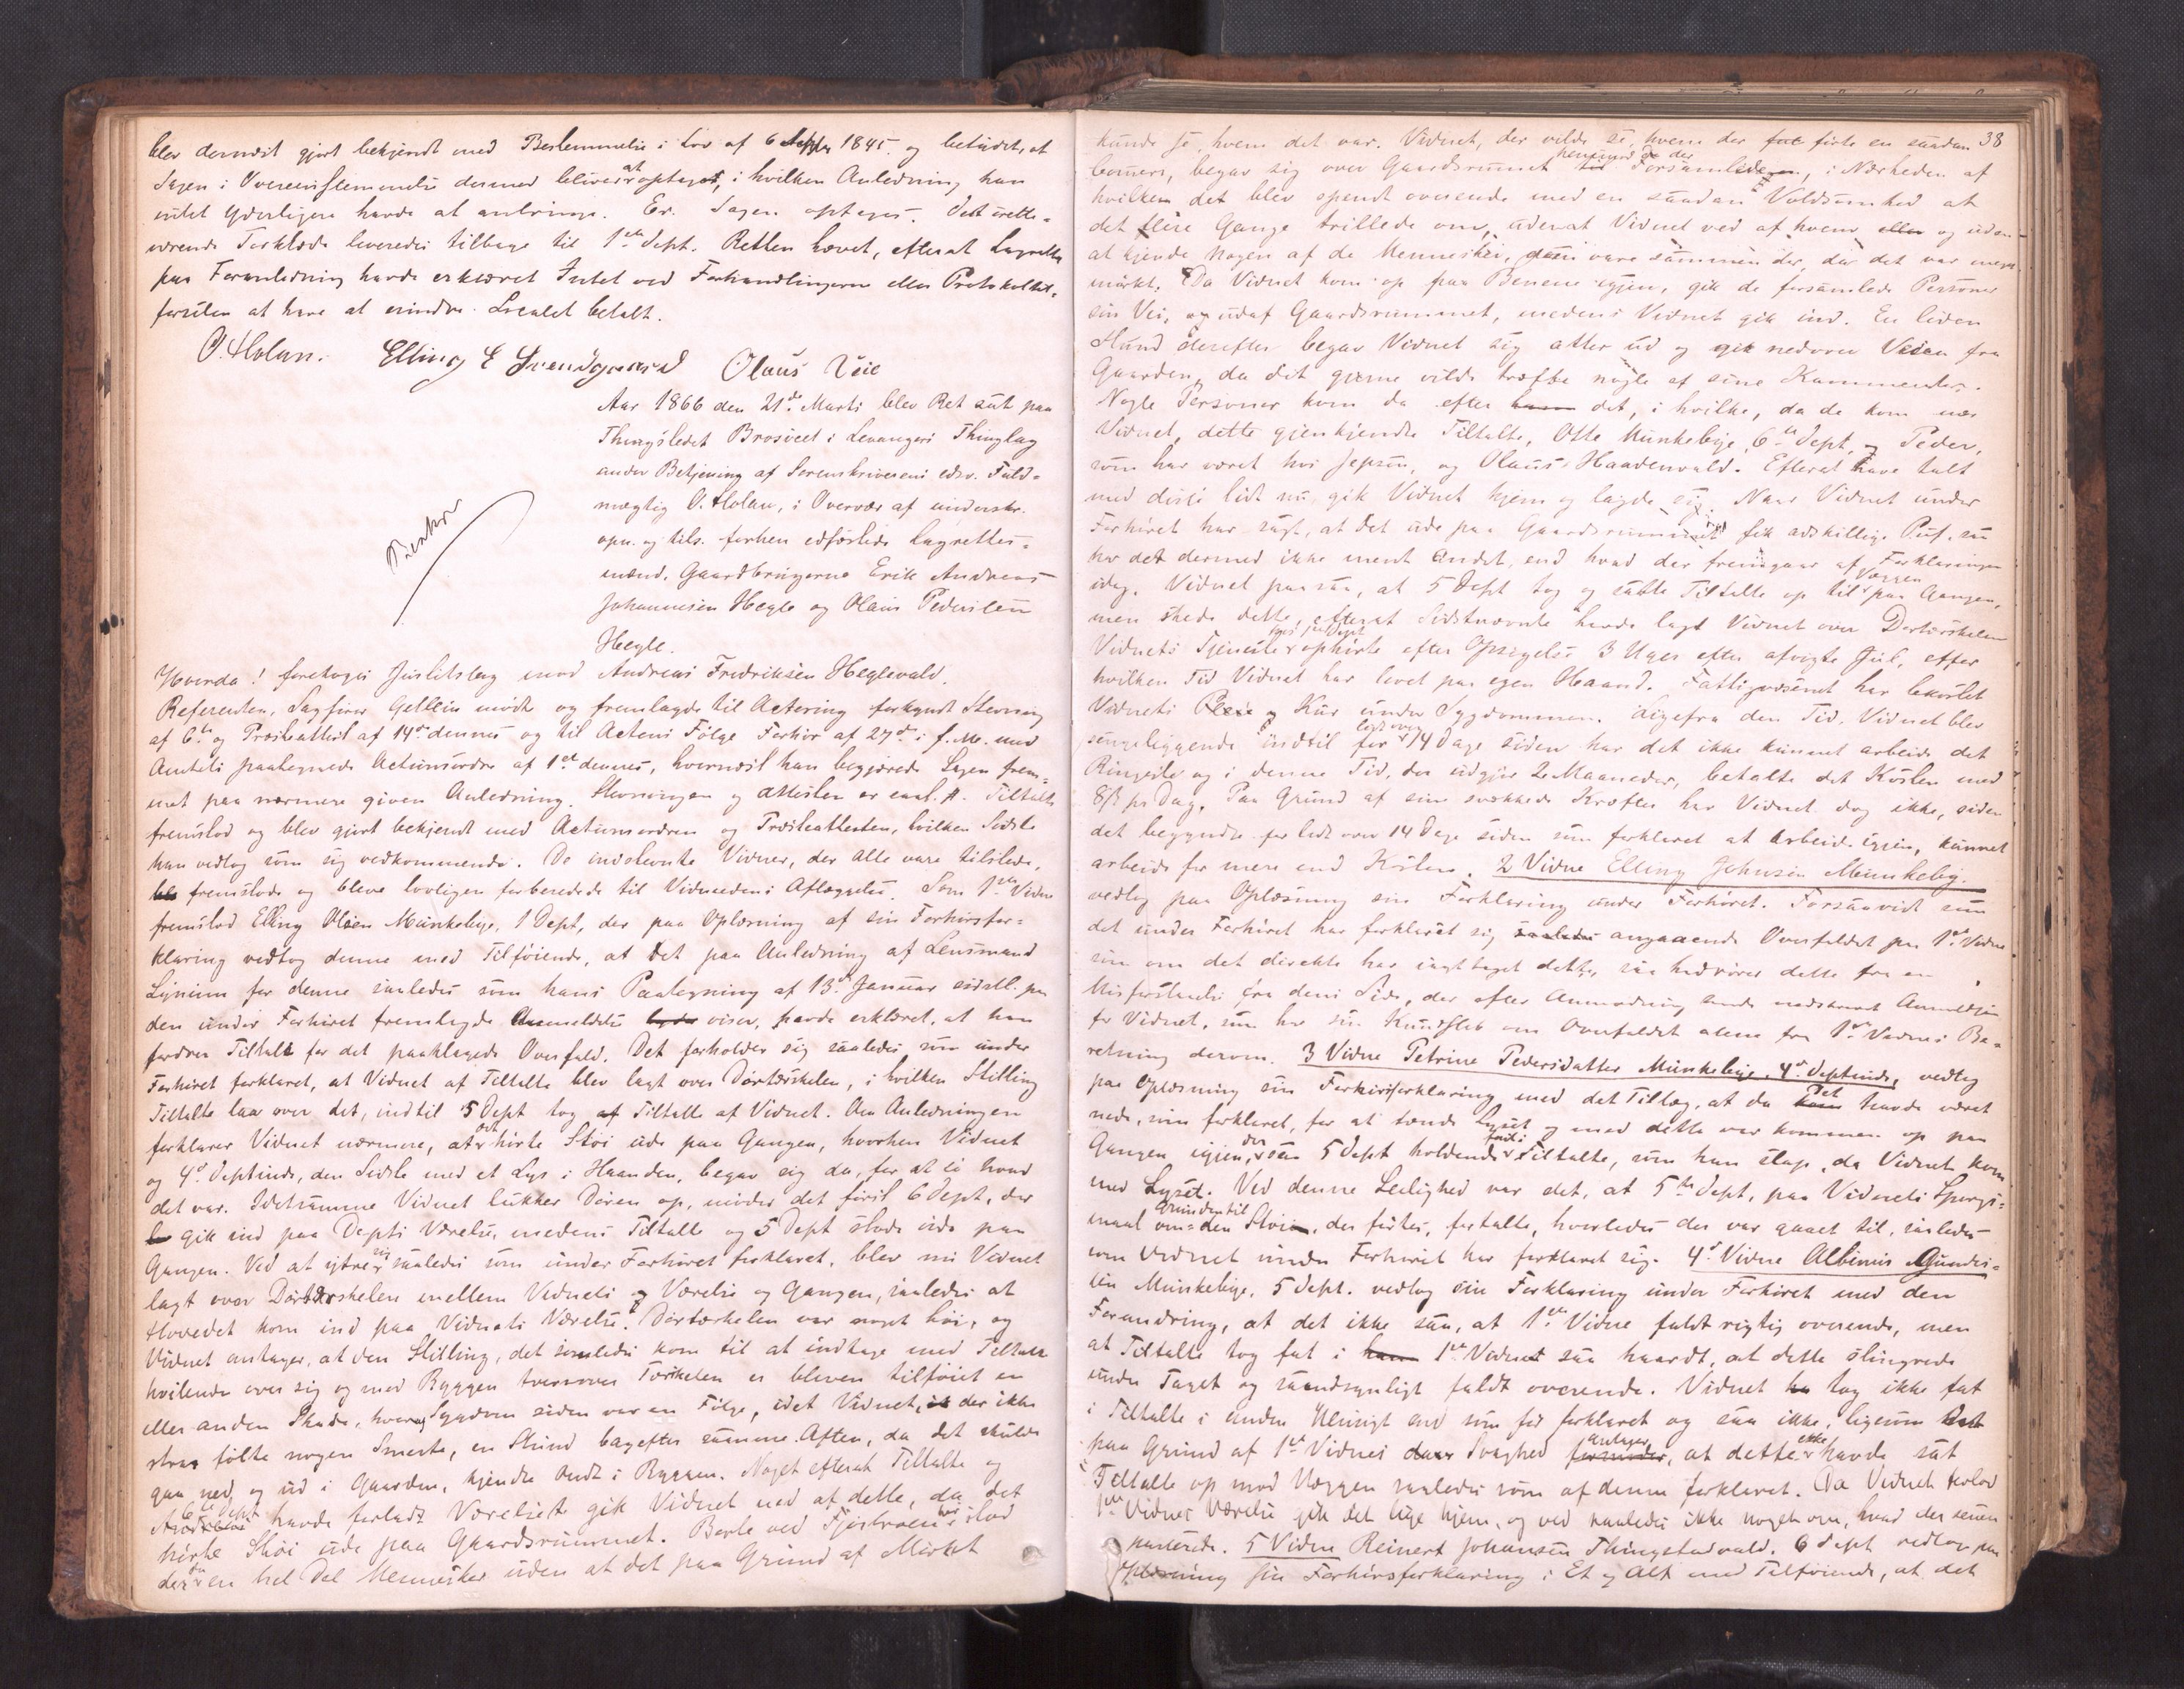 blev dernæst gjort bekjendt med Bestemmelse i Lov af 6 Septbr 1845 og betydet, at
Sagen i Overensstemmelse dermed bliver at optages, i hvilken Anledning han
intet yderligere havde at anbringe. Er. Sagen optages. Det irette-
værende Tørklæde leveredes tilbage til 1ste Dept. Retten hævet, efterat Lagrettet
paa Foranledning havde erklæret Intet ved Forhandlingerne eller Protokoltil-
førslen at have at erindre. Localet betalt.
O. Holan. Elling E Svendgaard Olaus Veie
Aar 1866 den 21de Marti blev Ret sat paa
Thingstedet Brusveet i Levangers Thinglag
under Betjening af Sorenskriverens edsv. Fuld-
mægtig O. Holan, i Overvær af underskr.
opn. og tils. forhen edfæstede Lagrettes-
mænd, Gaardbrugerne Erik Andreas
Johannesen Hegle og Olaus Pedersen
Hegle.
Hvorda! foretoges Justitssag mod Andreas Fredriksen Heglevald.
Referenten, Sagfører Gellein mødte og fremlagde til Actering forkyndt Stevning
af 6te og Præsteattest af 14de dennes og til Actens Følge Forhør af 27de i f. M. med
Amtets paategnede Actionsordre af 1ste dennes, hvornæst han begjærede Sagen frem-
met paa nærmere given Anledning. Stevningen og Attesten er saal. #. Tiltalte
fremstod og blev gjort bekjendt med Actionsordren og Præsteattesten, hvilken Sidste
han vedtog som sig vedkommende. De indstevnte Vidner, der alle vare tilstede,
fremstode og bleve lovligen forberedede til Vidneedens Aflæggelse. Som 1ste Vidne
fremstod Elling Olsen Munkebye, 1 Dept, der paa Oplæsning af sin Forhørsfor-
klaring vedtog denne med Tilføiende, at det paa Anledning af Lensmand
for denne saaledes som hans Paategning af 13de Januar sidstl. paa
den under Forhøret fremlagde Anmeldelse viser, havde erklæret, at han
fordrer Tiltalt for det paaklagede Overfald. Det forholder sig saaledes som under
Forhøret forklaret, at Vidnet af Tiltalte blev lagt over Dørtærskelen, i hvilken Stilling
Tiltalte laa over det, indtil 5 Dept tog af Tiltalte af Vidnet. Om Anledningen
forklarer Vidnet nærmere, at det hørte Støi ude paa Gangen, hvorhen Vidnet
og 4de Deptinde, den Sidste med et Lys i Haanden, begav sig da, for at se hvad
det var. Idetsamme Vidnet lukker Døren op, møder det først 6 Dept, der
gik ind paa Depts Værelse, medens Tiltalte og 5 Dept stode ude paa
Gangen. Ved at ytre sig saaledes som under Forhøret forklaret, blev nu Vidnet
lagt over Dørtærskelen mellem Vidnets Værelse og Gangen, saaledes at
Hovedet kom ind paa Vidnets Værelse. Dørtærskelen var noget høi, og
Vidnet antager, at den Stilling, det saaledes kom til at indtage med Tiltalte
hvilende over sig og med Ryggen tversover Tærskelen er bleven tilføiet en
eller anden Skade, hvoraf Sygdom siden var en Følge, idet Vidnet, der ikke
strax følte nogen Smerte, en Stund bagefter samme Aften, da det skulde
gaa ned, og ud i Gaarden, kjendte Ondt i Ryggen. Noget efterat Tiltalte og
6te Dept havde forladt Værelset gik Vidnet ned af dette, da det
hørte Støi ude paa Gaardsrummet. Borte ved stod
der da en hel Del Mennesker uden at det paa Grund af Mørket
38
kunde se, hvem det var. Vidnet, der vilde se, hvem der førte en saadan
, begav sig over Gaardsrummet henimod de der Forsamlede, i Nærheden af
hvilken det blev spendt overende med en saadan Voldsomhed at
det flere Gange trillede om, uden at Vidnet ved af hvem og uden
at kjende Nogen af de Mennesker, som vare sammen der, da det var meget
mørkt. Da Vidnet kom op paa Benene igjen, gik de forsamlede Personer
sin Vei, og udaf Gaardsrummet, medens Vidnet gik ind. En liden
Stund derefter begav Vidnet sig atter ud og gik nedover Veien fra
Gaarden, da det gjerne vilde træffe nogle af sine Kammerater.
Nogle Personer kom da efter det, i hvilke, da de kom nær
Vidnet, dette gjenkjendte Tiltalte, Otte Munkebye, 6te Dept, og Peder,
som har været hos Jepson, og Olaus Haadenvald. Efterat have talt
med disse lidt nu gik Vidnet hjem og lagde sig. Naar Vidnet under
Forhøret har sagt, at det ude paa Gaardsrummet fik adskillige Puf, saa
har det dermed ikke ment Andet, end hvad der fremgaar af Forklaringen
idag. Vidnet paa saa, at 5 Dept tog og satte Tiltalte op til Væggen paa Gangen,
men skede dette, efterat Sidstnævnte havde lagt Vidnet over Dørtærskelen.
Vidnets Tjeneste ophørte efter Opsigelse 3 Uger efter afvigte Jul, efter
hvilken Tid Vidnet har levet paa egen Haand. Fattigvæsenet har bekostet
Vidnets Pleie og Kur under Sygdommen. Ligefra den Tid, Vidnet blev
sengeliggende indtil for lidt over 14 Dage siden har det ikke kunnet arbeide det
Ringeste og i denne Tid, der udgjør 2 Maaneder, betalte det Kosten med
8 ß pr Dag. Paa Grund af sine svækkede Kræfter har Vidnet dog ikke, siden
det begyndte for lidt over 14 Dage siden som forklaret at arbeide igjen, kunnet
arbeide for mere end Kosten. 2 Vidne Elling Johnsen Munkeby
vedtog paa Oplæsning sin Forklaring under Forhøret. Forsaavidt som
det under Forhøret har forklaret sig angaaende Overfaldet paa 1ste Vidne
som om det direkte har iagttaget dette, saa hidrører dette fra en
Misforstaaelse fra dens Side, der efter Anmodning havde nedskrevet Anmeldelsen
for Vidnet, som har sin Kundskab om Overfaldet alene fra 1ste Vidnes Be-
retning derom. 3 Vidne Petrine Pedersdatter Munkebye, 4de Deptinde, vedtog
paa Oplæsning sin Forhørsforklaring med det Tillæg, at da det havde været
nede, som forklaret, for at tænde Lyset og med dette var kommen op paa
Gangen igjen, der saa 5 Dept holdende fast i Tiltalte, som han slap, da Vidnet kom
med Lyset. Ved denne Leilighed var det, at 5te Dept, paa Vidnets Spørgs-
maal om Grunden til den Støi, der førtes, fortalte, hvorledes der var gaaet til, saaledes
som Vidnet under Forhøret har forklaret sig. 4de Vidne Albinus Gunder-
sen Munkebye, 5 Dept. vedtog sin Forklaring under Forhøret med den
Forandring, at det ikke saa, at 1ste Vidne faldt rigtig overende, men
at Tiltalte tog fat i 1ste Vidnet saa haardt, at dette slingrede
under Taget og sandsynligt faldt overende. Vidnet tog ikke fat
i Tiltalte i anden Hensigt end som før forklaret og saa ikke, ligesom det
paa Grund af 1ste Vidnes Svaghed antager, at dette ikke havde sat
Tiltalte op mod Væggen saaledes som af denne forklaret. Da Vidnet forlod
1ste Vidnes Værelse gik det lige hjem, og ved saaledes ikke noget om, hvad der senere
passerede. 5 Vidne Reinert Johansen Thingstadvald, 6 Dept vedtog paa
Oplæsning sin Forhørsforklaring i Et og Alt med Tilføiende, at det